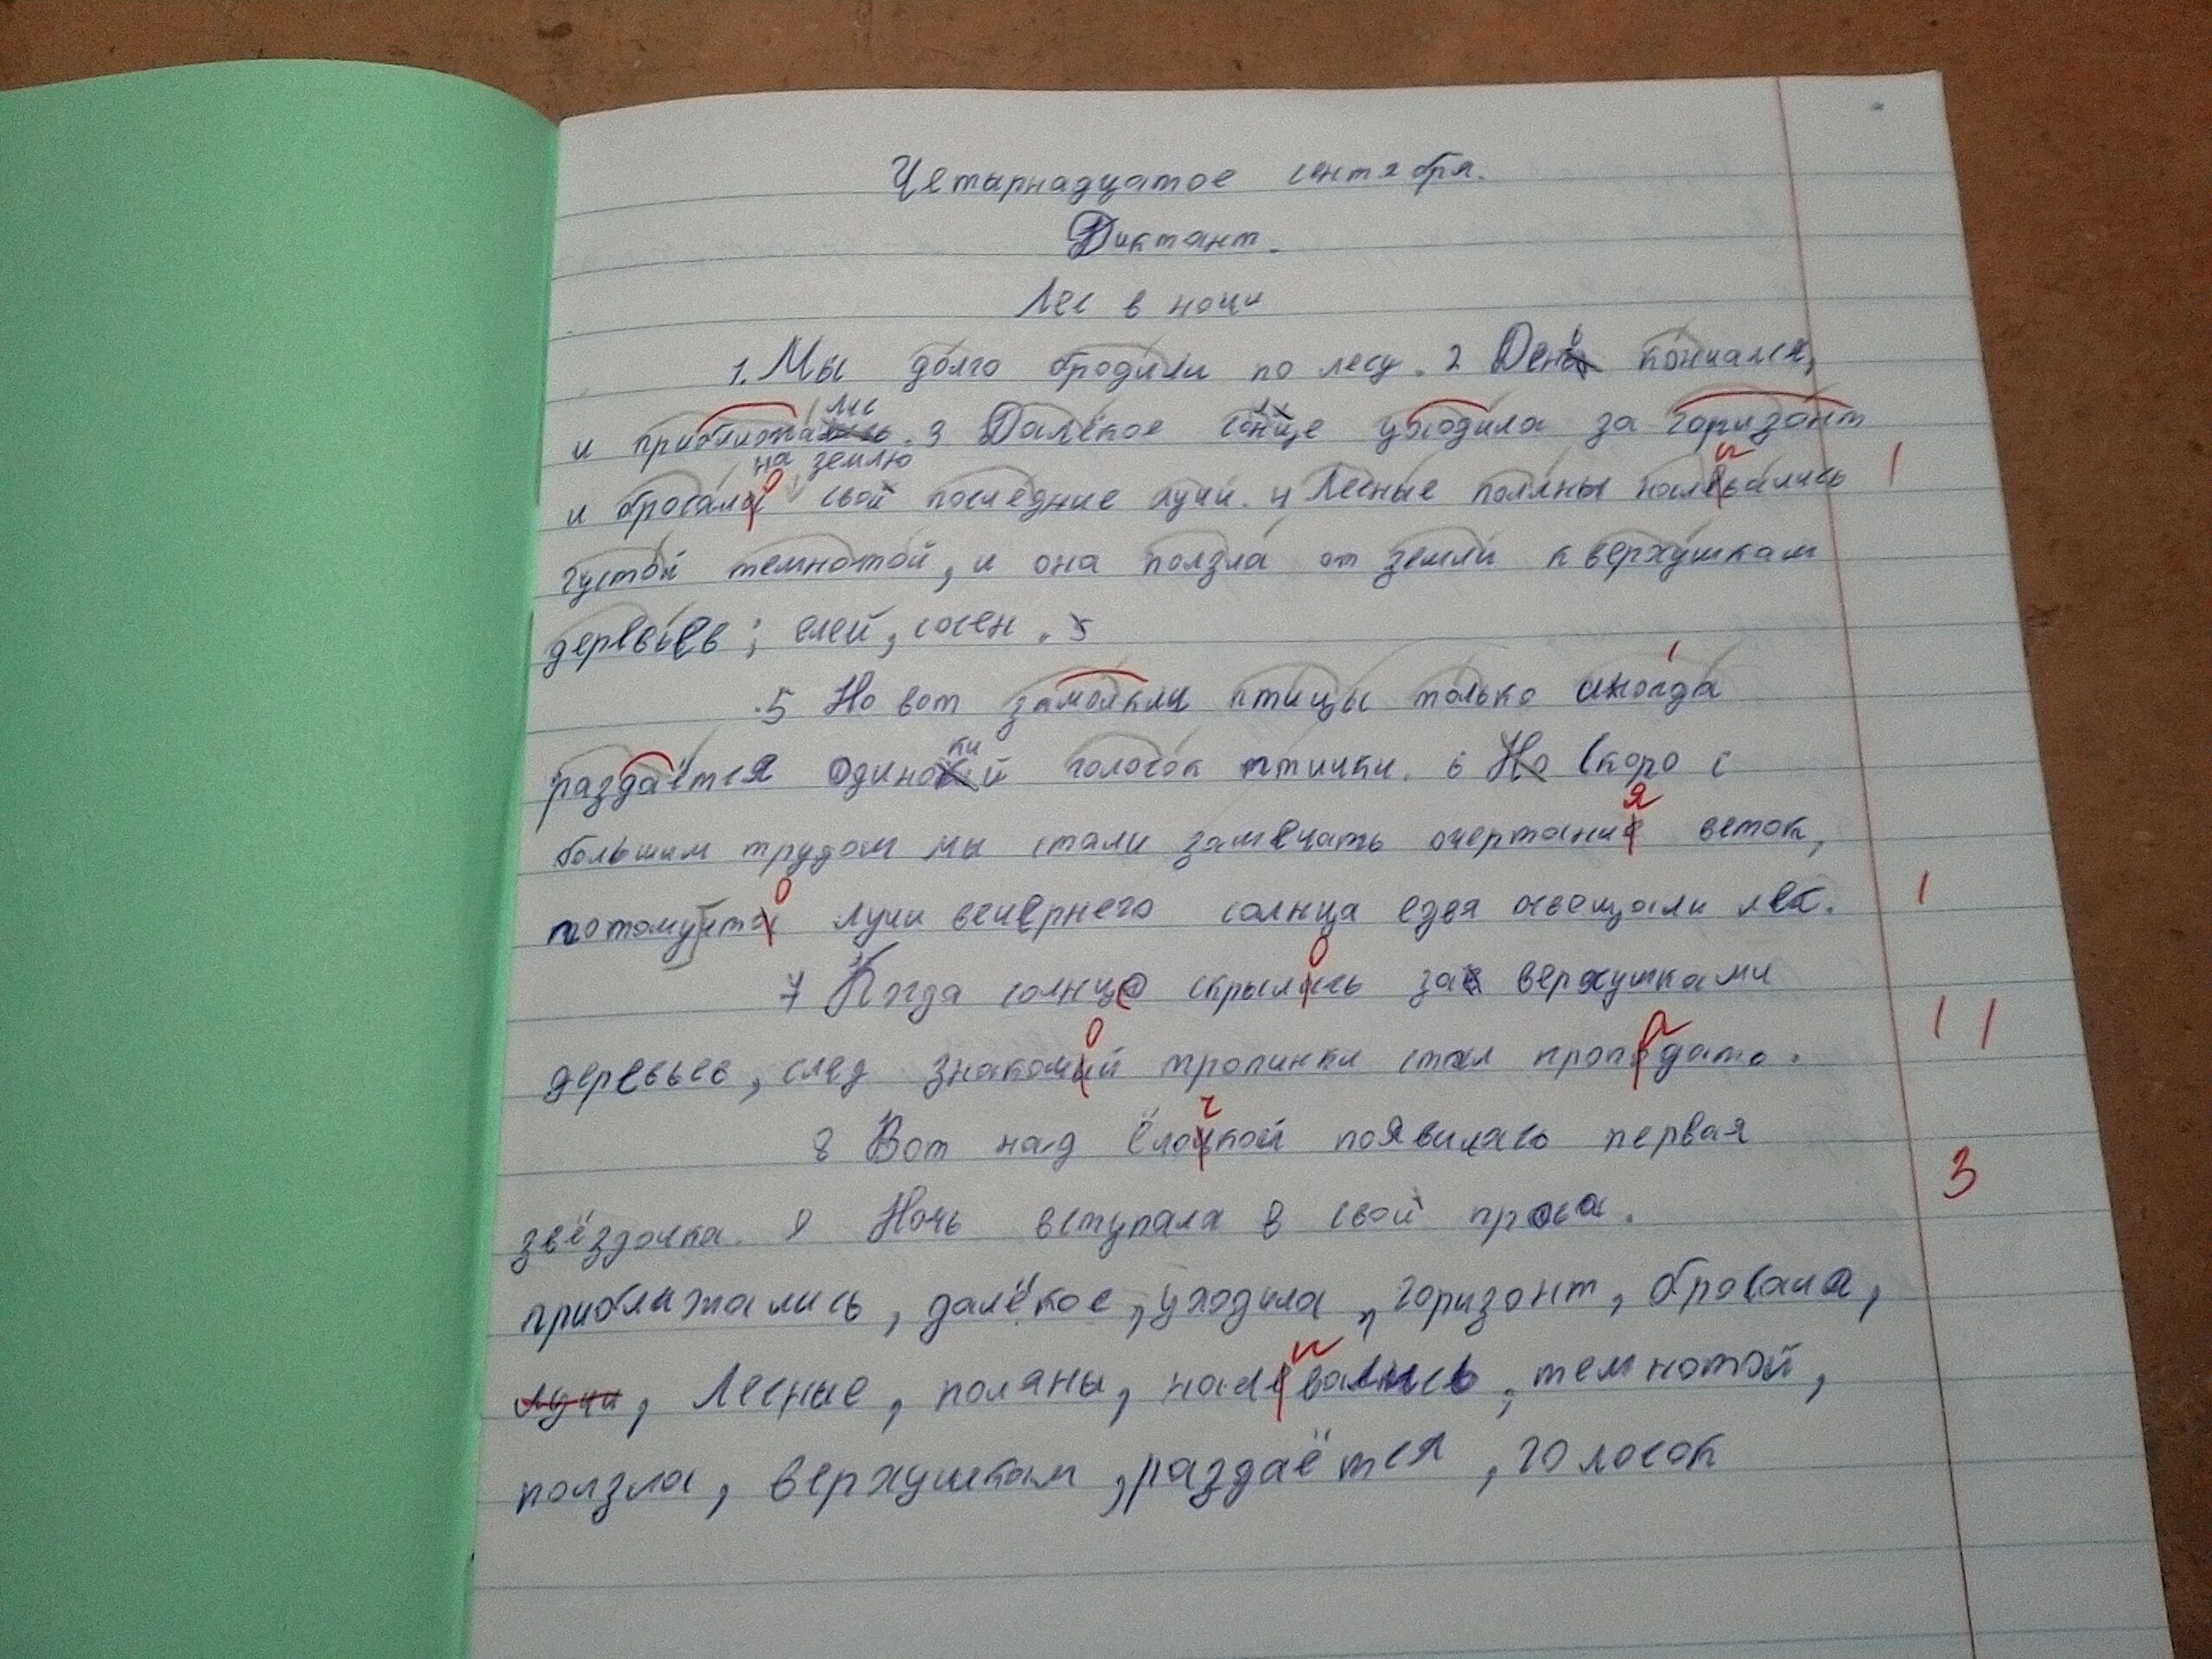 Четырнадцатое сентября.
Диктант.
Лес в ночи
1. Мы долго бродили по лесу. 2 День кончался,
лис
и приближались. 3 Далёкое сонце уходила за горизонт
на землю
и бросала свой последние лучи. 4 Лесные поляны налевались 1
густой темнотой, и она ползла от земли к верхушкам
деревьев; елей, сосен. 5
5 Но вот замолкли птицы только иногда
раздаётся одинокий голосок птички. 6 Но скоро с
большим трудом мы стали замечать очертание веток,
потомучта лучи вечернего солнца едва освещали лес. 1
7 Когда солнце скрылась за верхушками
деревьев, след знакомий тропинки стал пропедать. 1 1
8 Вот над ёлочкой появилась первая
3
звёздочка. 9 Ночь вступала в свой права.
приближались, далёкое, уходила, горизонт, бросала,
лучи, Лесные, поляны, налевались, темнотой,
ползла, верхушкам, раздаётся, голосок